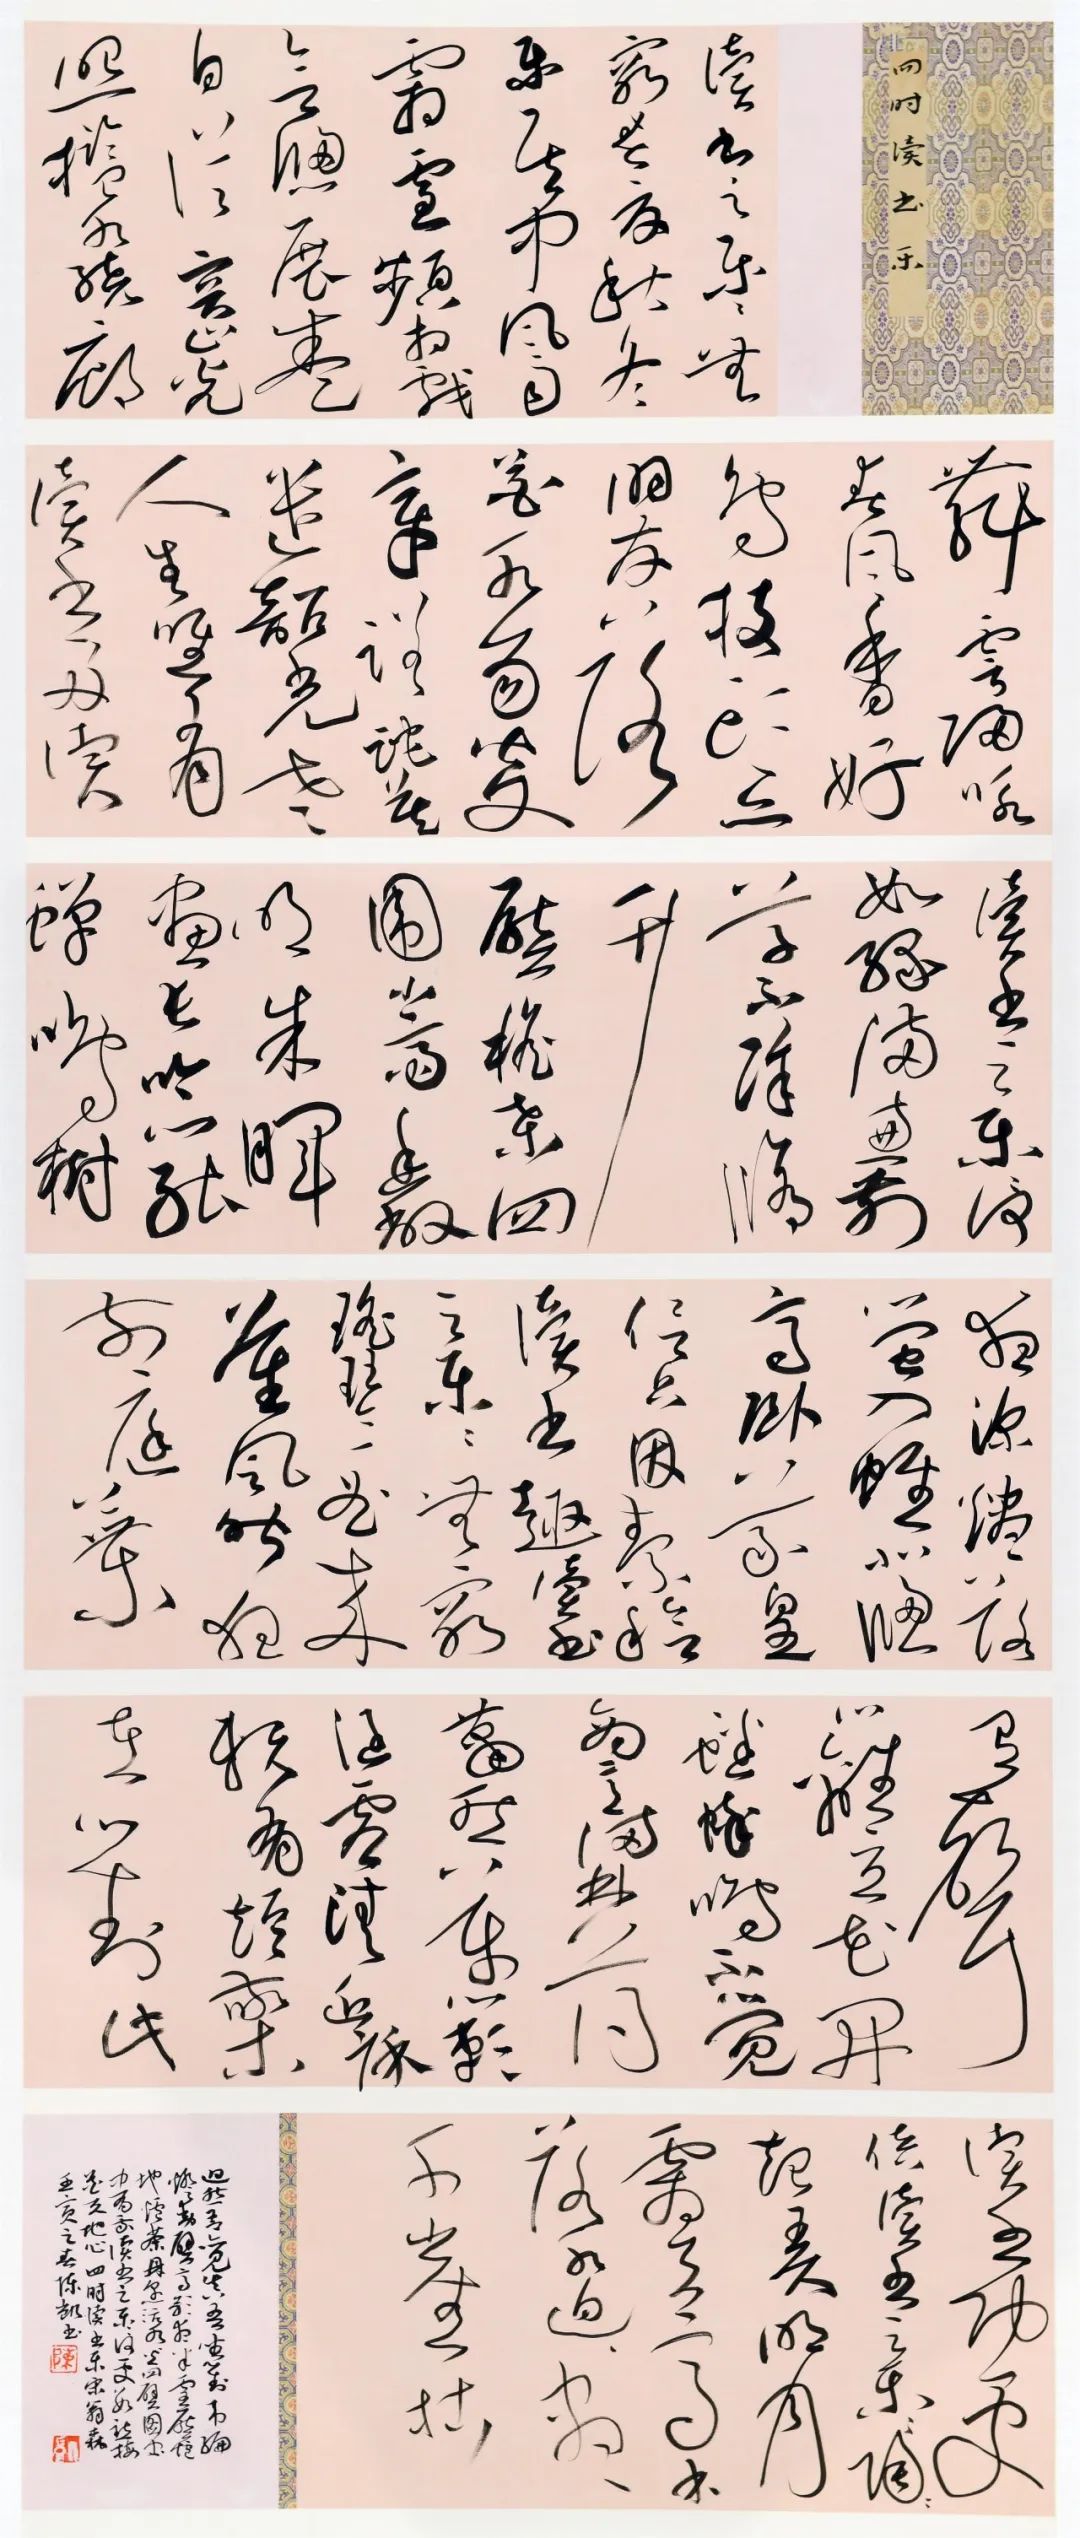 四时读书乐
读书之乐乐无
穷春夏秋冬
乐其中风雨
霜雪频相戏
窗展卷
自从容山光
照槛水绕廊
舞雩归咏
春风香好
鸟枝头亦
朋友落
花水面皆文
章蹉跎莫
遣韶光老
人生唯有
读书好读
读书之乐何
如绿满窗前
草不除修
竹
压檐桑四
围小斋幽敞
明朱晖
昼长吟罢
蝉鸣树
夜深烬落
萤入帏北窗
高卧羲皇
侣只因素稔
读书趣读书
之乐乐无穷
瑶琴一曲来
薰风昨夜
前庭叶
有声
篱豆花开
蟋蟀鸣不觉
商意满林薄
萧然万籁
涵虚清近床
赖有短檠
在对此
读书功更
倍读书之乐乐陶陶
起弄明月
霜天高木
落水尽
千崖枯
迥然吾亦见真吾坐对韦编
灯动壁高歌夜半雪压庐
地炉茶鼎烹活火四壁图书
中有我读书之乐何处寻数点梅
花天地心四时读书乐宋翁森
之春陈凯书